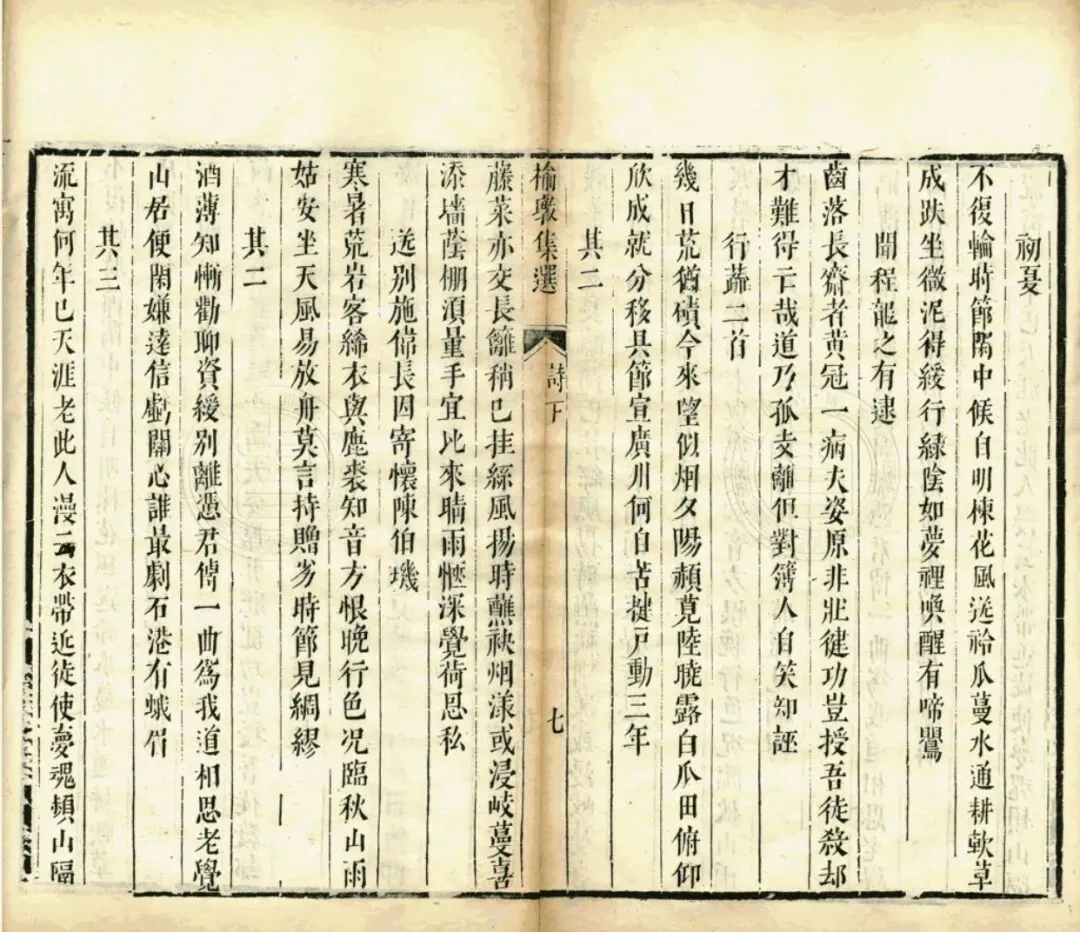 初夏
不復輪時節閑中候自明楝花風送袷瓜蔓水通耕軟草
成趺坐微泥得緩行綠陰如夢裡喚醒有啼鸎
聞程龍之有逮
齒落長齋者黄冠一病夫姿原非壯徤功豈授吾徒殺却
才難得亡哉道乃孤支離但對簿人自笑知誣
行蔬二首
幾日荒猶磧今來望似烟夕陽頳莧陸曉露白瓜田俯仰
欣成就分移具節宣廣川何自苦揵戸動三年
其二
榆墩集選
詩下
七
藤菜亦交長籬稍已挂絲風揚時蘸袂烟漾或浸岐蔓喜
添墻蔭棚湏量手宜比來晴雨愜深覺荷恩私
送別施偉長因寄懷陳伯璣
寒暑荒岩客絺衣與塵裘知音方恨晚行色况臨秋山雨
姑安坐天風易放舟莫言持贈劣時節見綢繆
其二
酒薄知慚勸聊資緩别離憑君傳一曲爲我道相思老覺
山居便閑嫌達信戱關心誰最劇石港有蛾眉
其三
流寓何年已天涯老此人漫云衣帶近徒使夢魂頻山隔